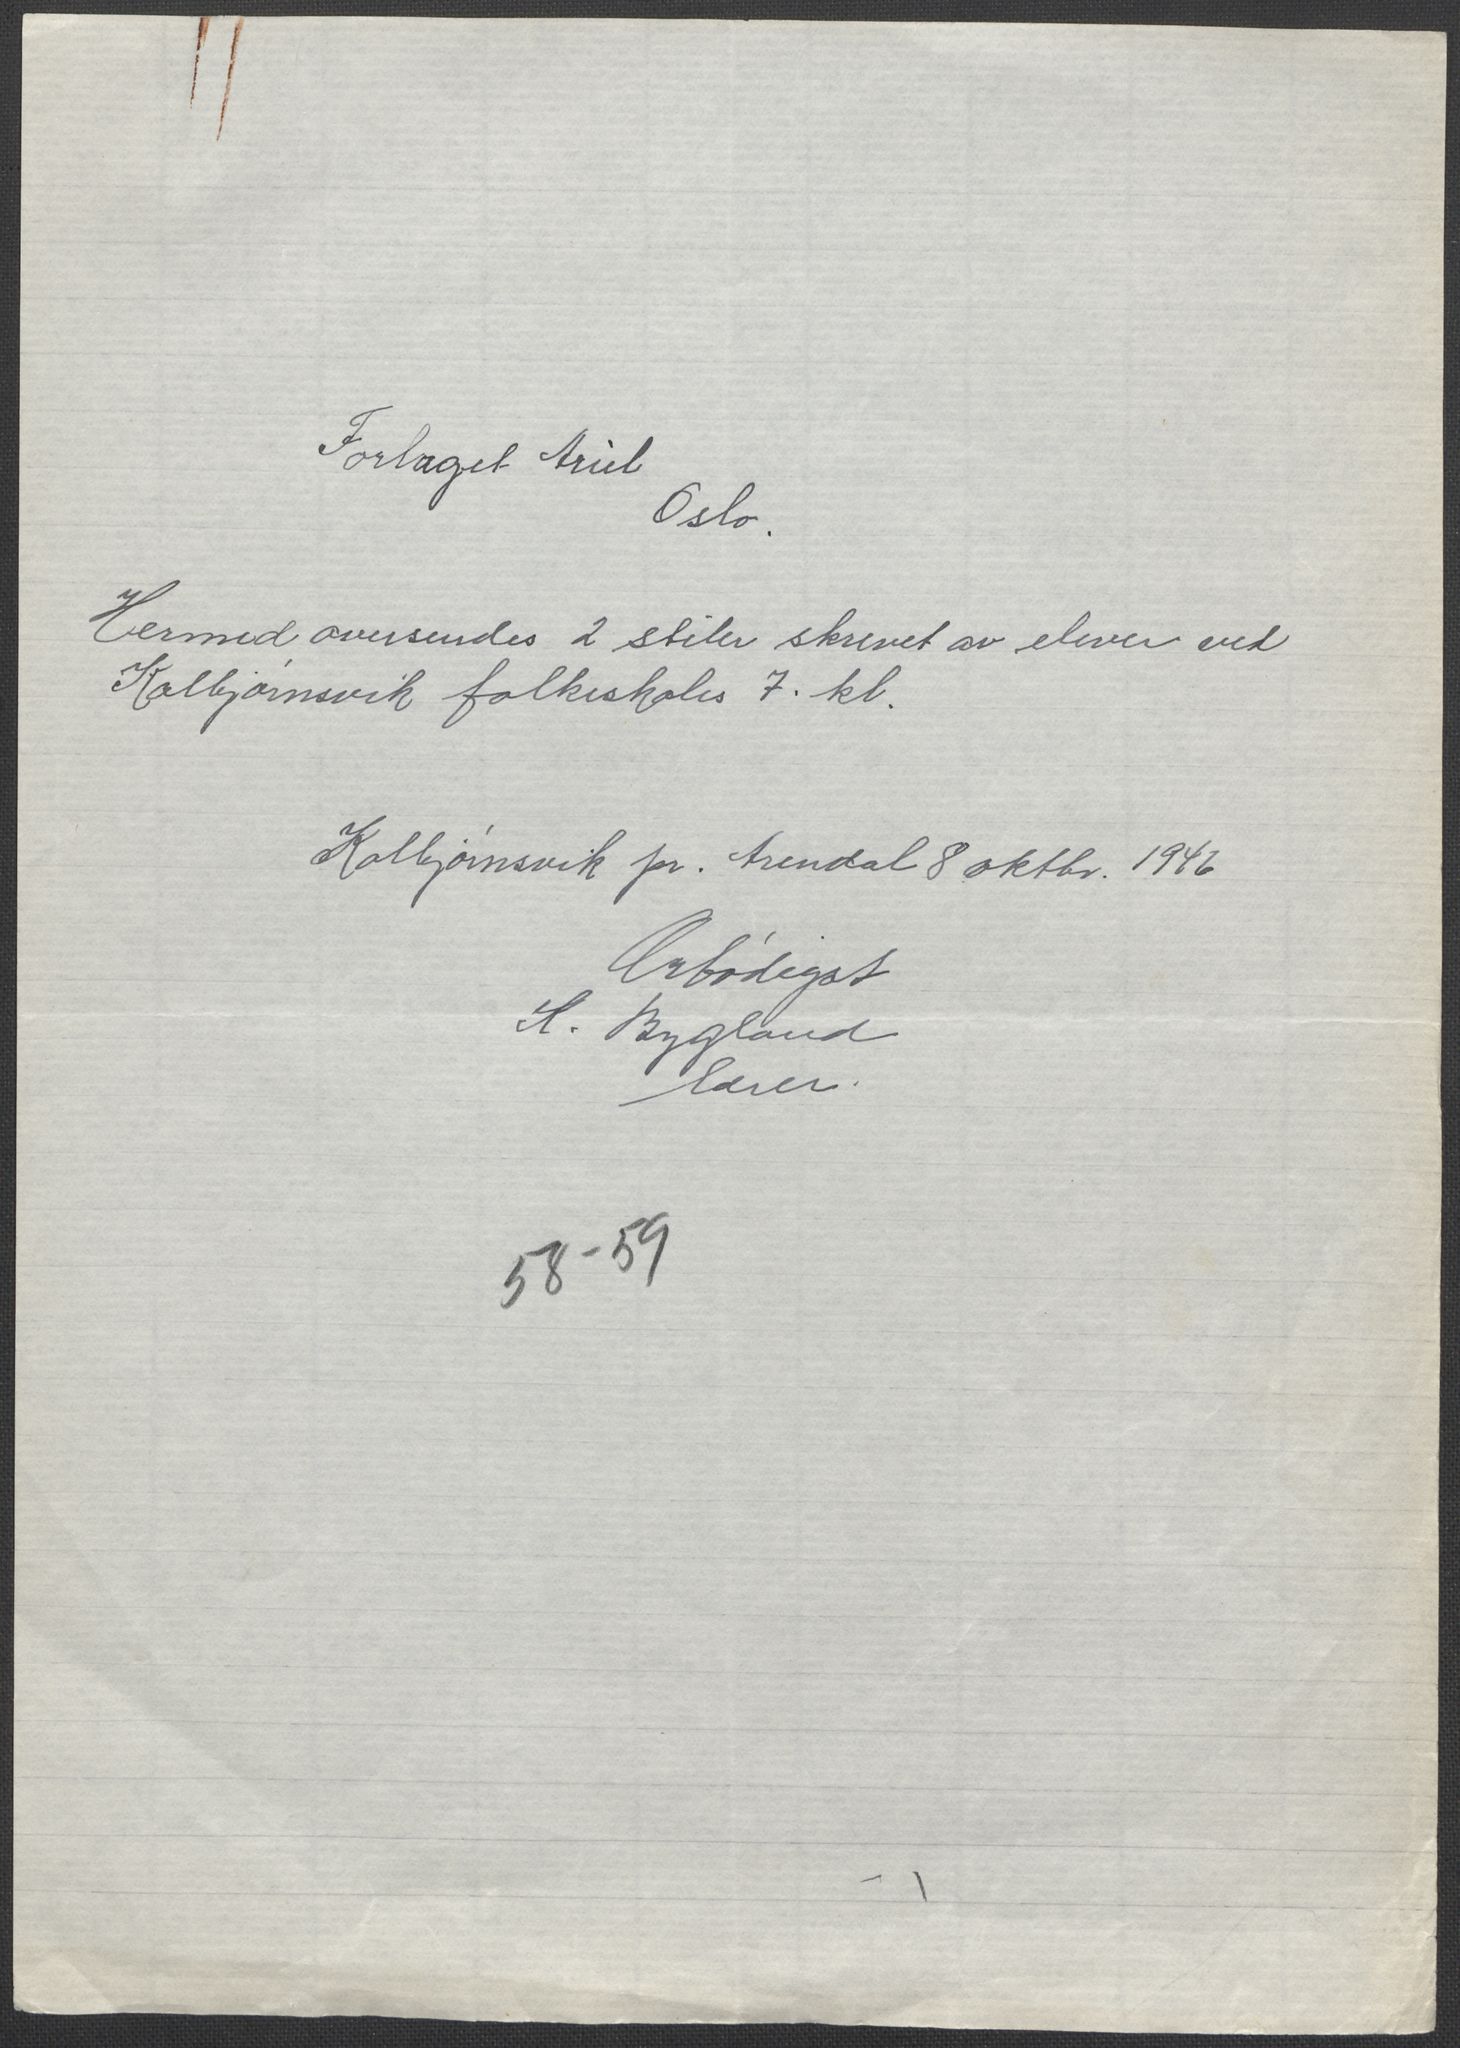 Forlaget Ariel
Oslo.
Hermed oversendes 2 stiler skrevet av elever ved
Kolbjørnsvik folkeskoles 7. kl.
Kolbjørnsvik pr. Arendal 8 oktbr. 1946
Ærbødigst
H. Bygland
lærer.
58-59